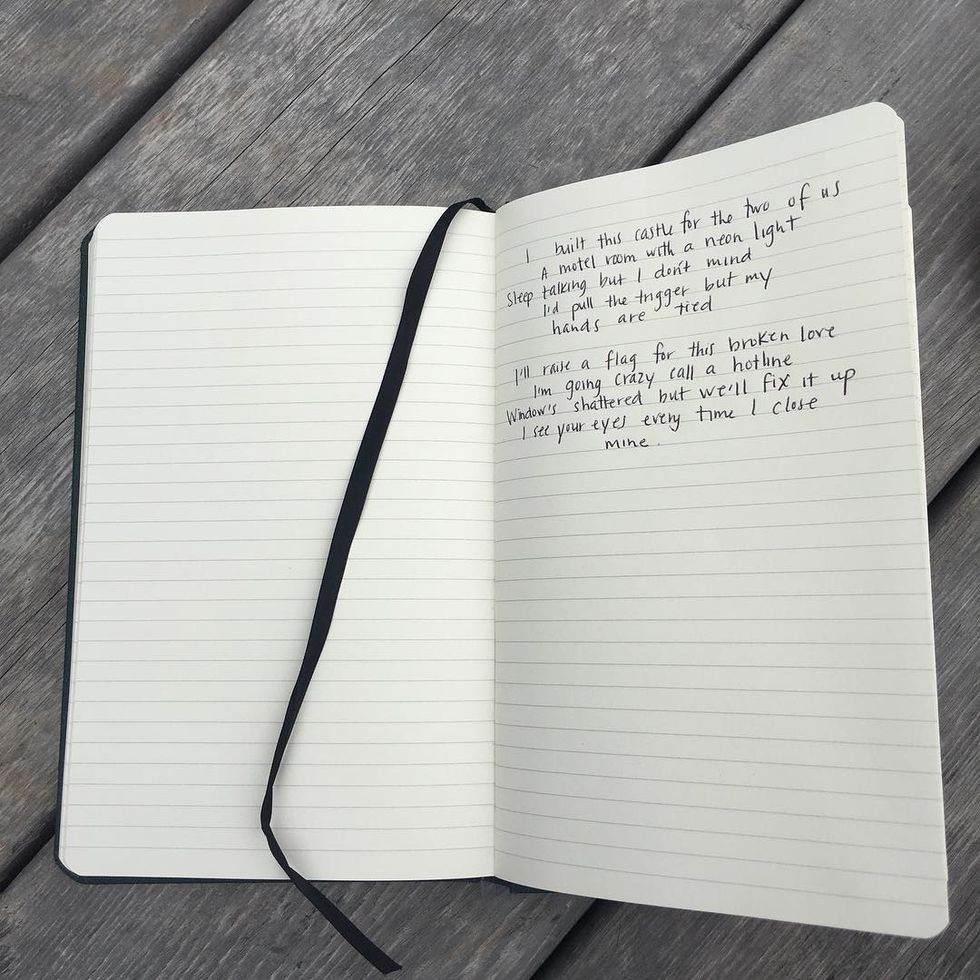 I built this castle for the two of us
A motel room with a neon light
Sleep talking but I don't mind
I'd pull the trigger but my
hands are tied
I'll raise a flag for this broken love
I'm going crazy call a hotline
Window's shattered but we'll fix it up
I see your eyes every time I close
mine.